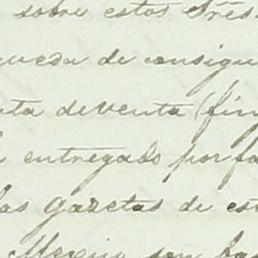 sobre estos tres
queda de consigu
ta de venta (fin
entregado por fa
las gazetas de est
Mexico son las